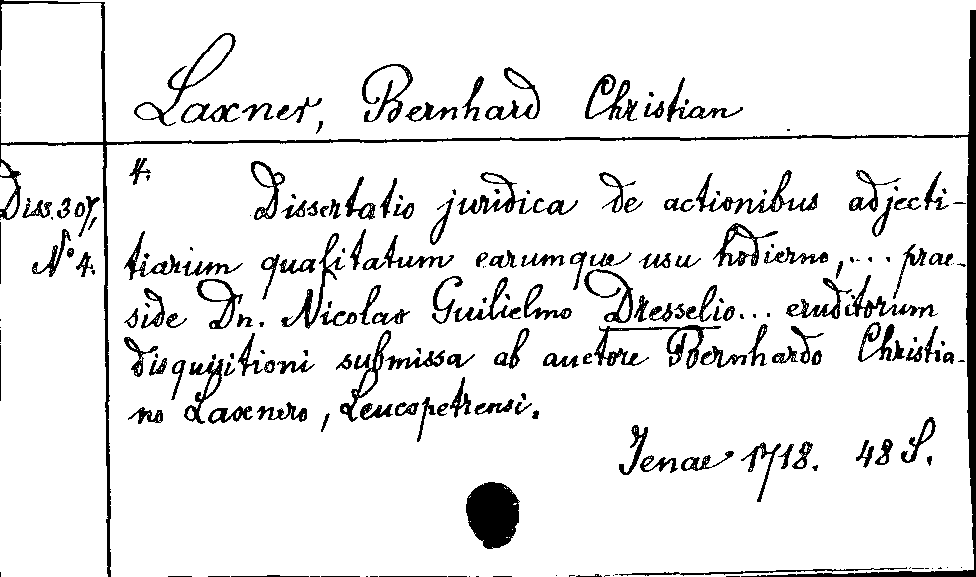 Laxner, Bernhard Christian
4.
Diss. 307,
N° 4.
Dissertatio juridica de actionibus adjecti-
tiarum qualitatum earumque usu hodierno, ... prae-
side Dn. Nicolao Guilielmo Dresselio ... eruditorum
disquisitioni submissa ab auctore Bernhardo Christia-
no Laxnero, Leucopetrensi.
Jenae 1718. 48 S.